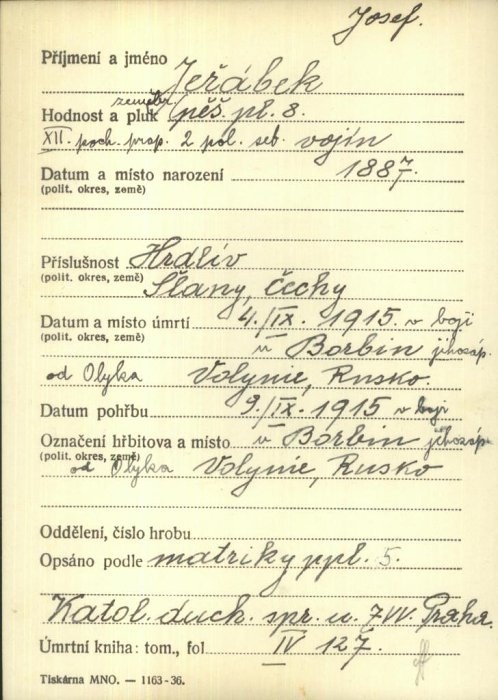 Josef.
Příjmení a jméno Jeřábek
zeměbr.
Hodnost a pluk pěš. pl. 8.
XII. poch. prap. 2 pol. set. vojín
Datum a místo narození 1887.
(polit. okres, země)
Příslušnost Hrdlív
(polit. okres, země) Slaný, Čechy
Datum a místo úmrtí 4./IX. 1915. v boji
(polit. okres, země) u Borbin jihozáp.
od Olyka Volynie, Rusko.
Datum pohřbu 9./IX. 1915 v boji
Označení hřbitova a místo u Borbin jihozáp.
(polit. okres, země)
od Olyka Volynie, Rusko
Oddělení, číslo hrobu
Opsáno podle matriky ppl. 5.
Katol. duch. spr. u. ZVV. Praha.
Úmrtní kniha: tom., fol IV 127.
Tiskárna MNO. — 1163-36.